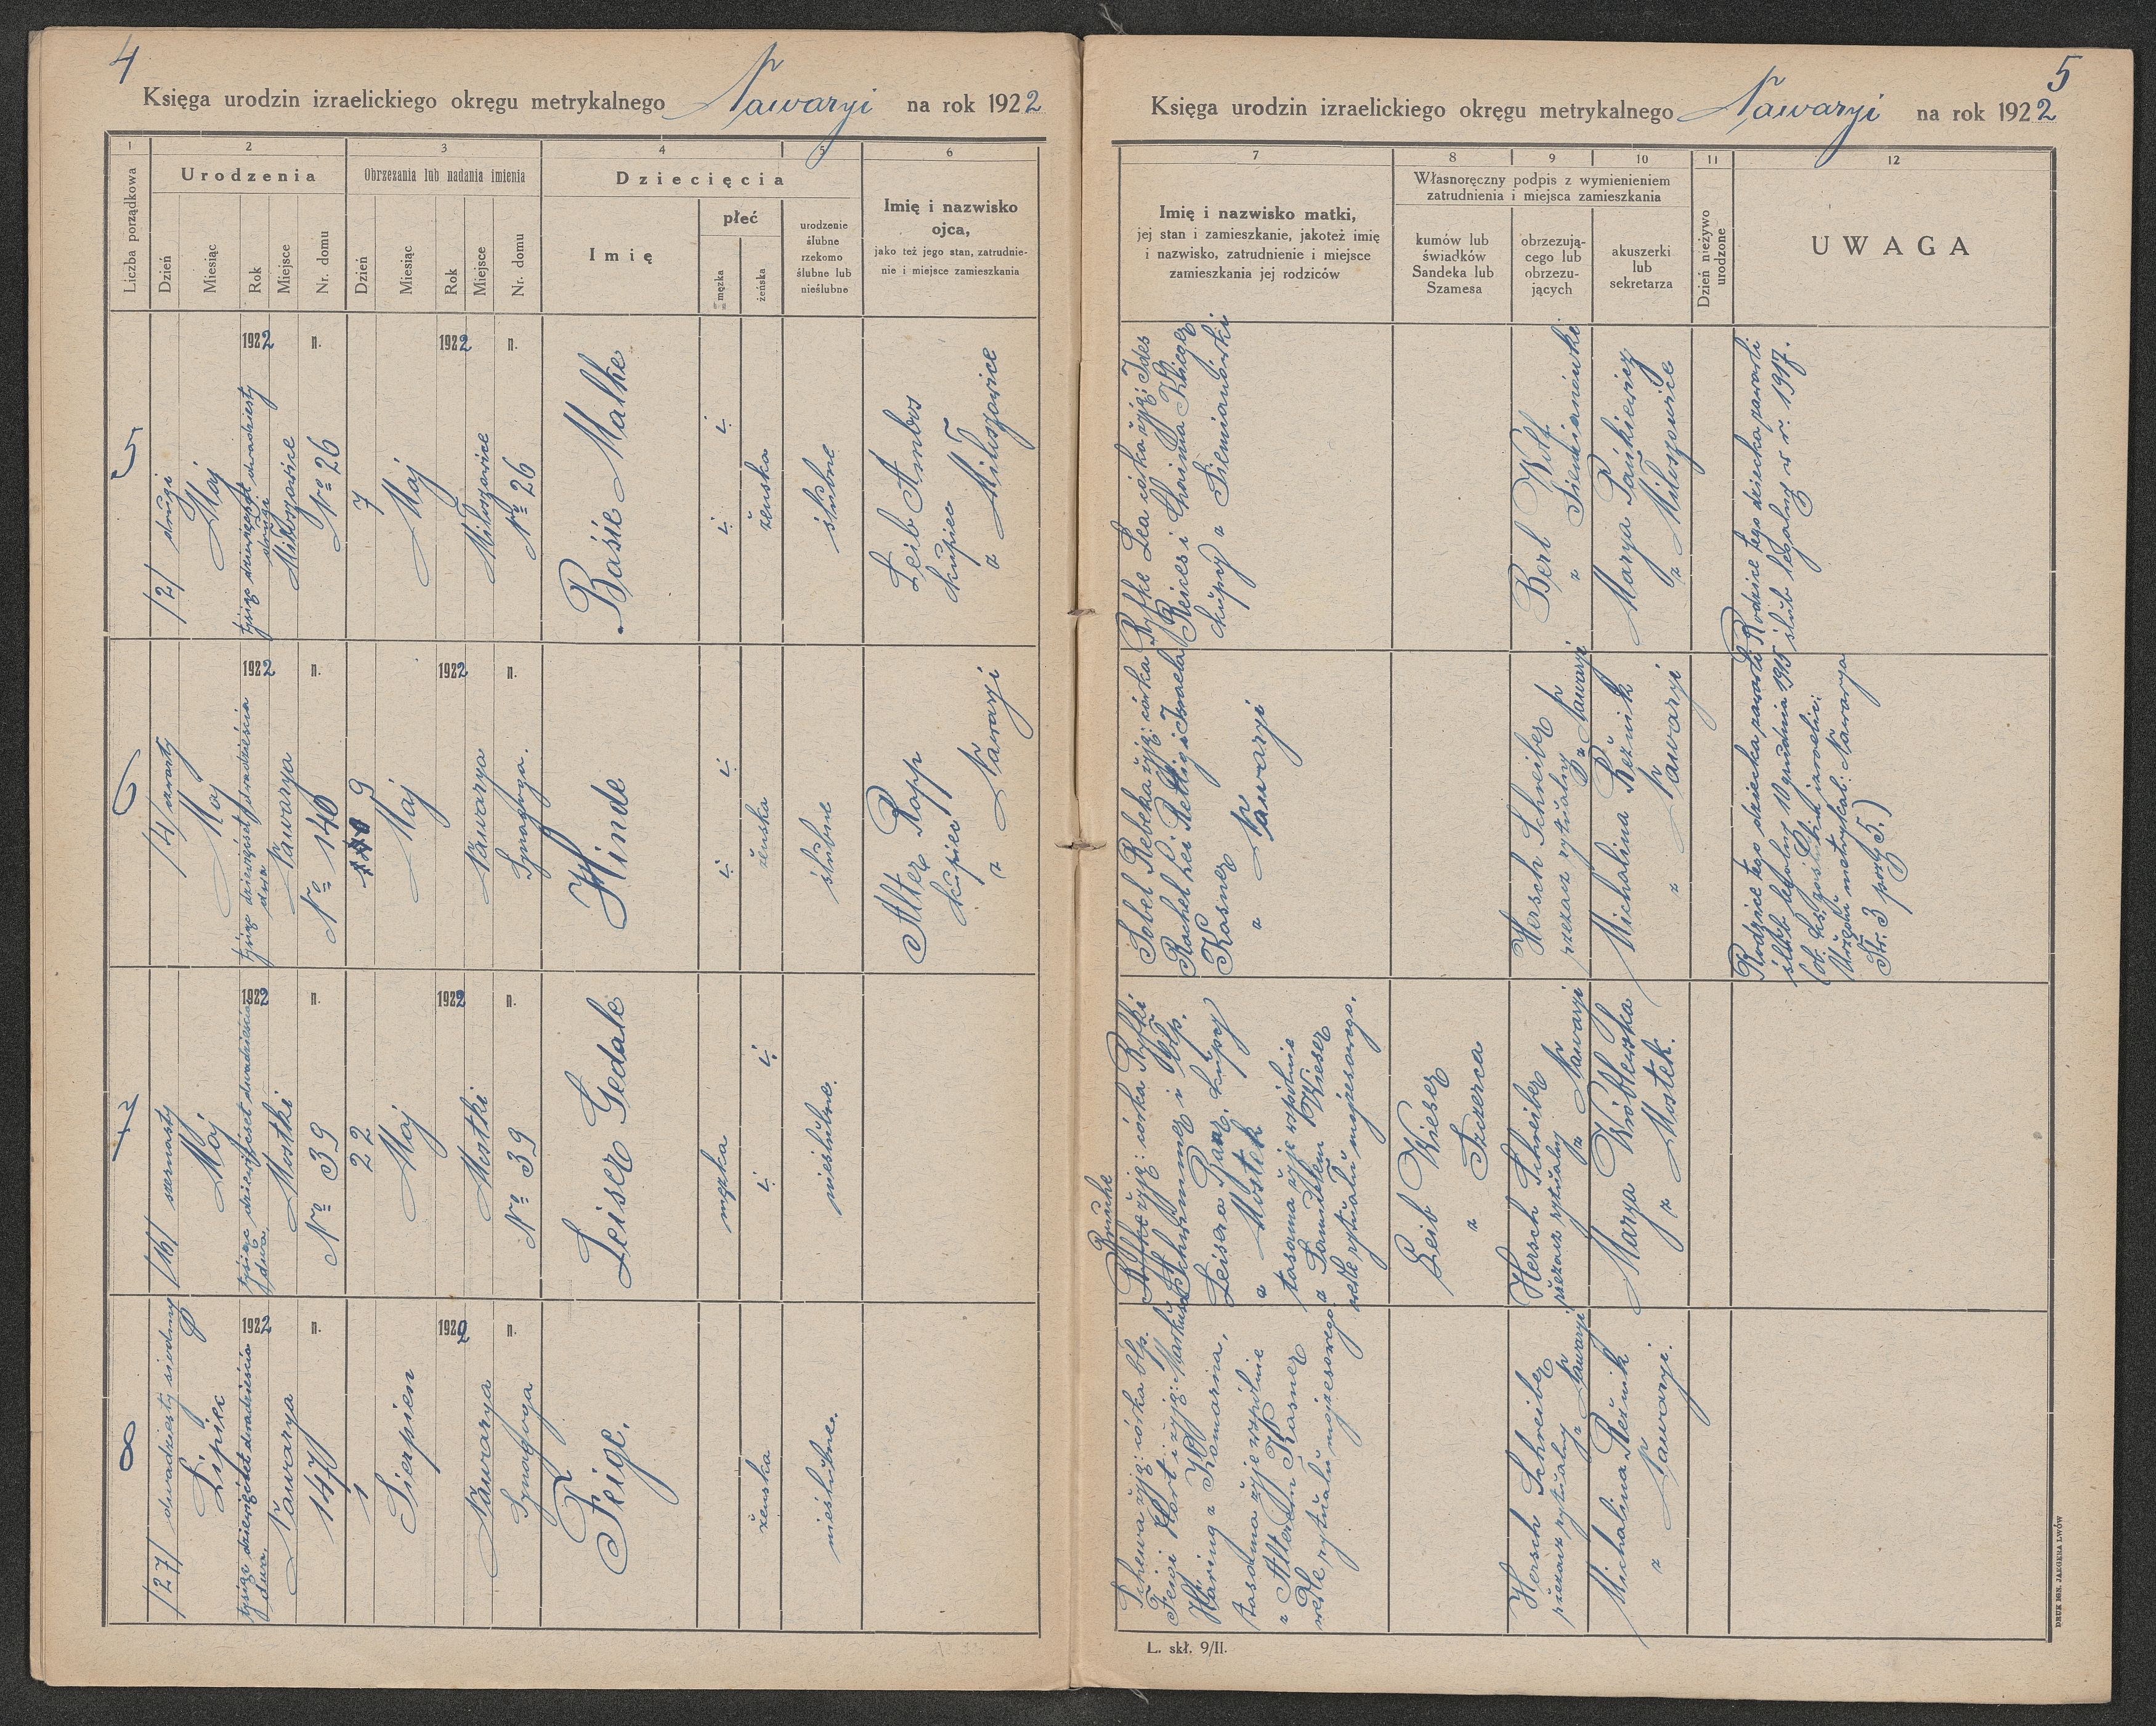 4
Księga urodzin izraelickiego okręgu metrykalnego Nawaryi na rok 1922
1
2
3
4
5
6
Liczba porządkowa
Urodzenia
Dzień
Miesiąc
Rok
Miejsce
Nr. domu
Obrzezania lub nadania imienia
Dzień
Miesiąc
Rok
Miejsce
Nr. domu
Dziecięcia
Imię
płeć
męzka
żeńska
urodzenie
ślubne
rzekomo
ślubne lub
nieślubne
Imię i nazwisko
ojca,
jako też jego stan, zatrudnie-
nie i miejsce zamieszkania
5
/2/ drugi
Maj
1922
tysiąc dziewięćset dwudziesty
drugi
Miłoszowice
n.
No 26
7
Maj
1922
Miłoszowice
n.
No 26
Basie Malke
żeńska
ślubne
Leib Ambos
kupiec
z Miłoszowice
6
/4/ czwarty
Maj
1922
tysiąc dziewięćset dwadzieścia
dwa
Nawarya
n.
No 140
9
Maj
1922
Nawarya
n.
Synagoga.
Hinde
żeńska
ślubne
Alter Rapp
kupiec
z Nawaryi
7
/16/ szesnasty
Maj
1922
tysiąc dziewięćset dwadzieścia
dwa.
Mostki
n.
No 39
22
Maj
1922
Mostki
n.
No 39
Leiser Gedale
męzka
nieślubne.
8
/27/ dwudziesty siódmy
Lipiec
1922
tysiąc dziewięćset dwadzieścia
dwa.
Nawarya
n.
147
1
Sierpień
1922
Nawarya
n.
Synagoga
Feige.
żeńska
nieślubne.
5
Księga urodzin izraelickiego okręgu metrykalnego Nawaryi na rok 1922
7
8
9
10
11
12
Imię i nazwisko matki,
jej stan i zamieszkanie, jakoteż imię
i nazwisko, zatrudnienie i miejsce
zamieszkania jej rodziców
Własnoręczny podpis z wymienieniem
zatrudnienia i miejsca zamieszkania
kumów lub
świadków
Sandeka lub
Szamesa
obrzezują-
cego lub
obrzezu-
jących
akuszerki
lub
sekretarza
Dzień nieżywo
urodzone
UWAGA
Ryfke Lea córka żyją: Ides
Reices i Chaima Krieger
kupcy z Siemianówki
Berl Wilf
z Siemianówki
Marya Pańkiewicz
z Miłoszowice
Rodzice tego dziecka zawarli
ślub legalny w r. 1917.
Sobel Rebeka żyją: córka
Rachel Lei Rettig i Izraela
Kasner
z Nawaryi
Hersch Schreiber
rzezacz rytualny z Nawaryi
Michalina Reźnik
z Nawaryi
Rodzice tego dziecka zawarli
ślub legalny 10 grudnia 1915
Urzędu metrykal: Nawarya
Str. 3 poz 5.)
Bruche
Ryfke żyją: córka Ryfki
Schwimmer i błp.
Leisera Barr, kupcy
z Mostek
tasama żyje wspólnie
z Samuelem Wieser
wedle rytuału mojżeszowego.
Leib Wieser
z Szczerca
Hersch Schreiber
rzezacz rytualny z Nawaryi
Marya Wróblewska
z Mostek.
Scheiwa żyją: córka błp.
Feiwi Hort i żyją: Markusa
Häring z Komarna,
tasama żyje wspólnie
z Alterem Kasner
wedle rytuału mojżeszowego
Hersch Schreiber
rzezacz rytualny z Nawaryi
Michalina Reźnik
z Nawaryi.
L. skł. 9/II.
DRUK IGN. JAEGERA LWÓW